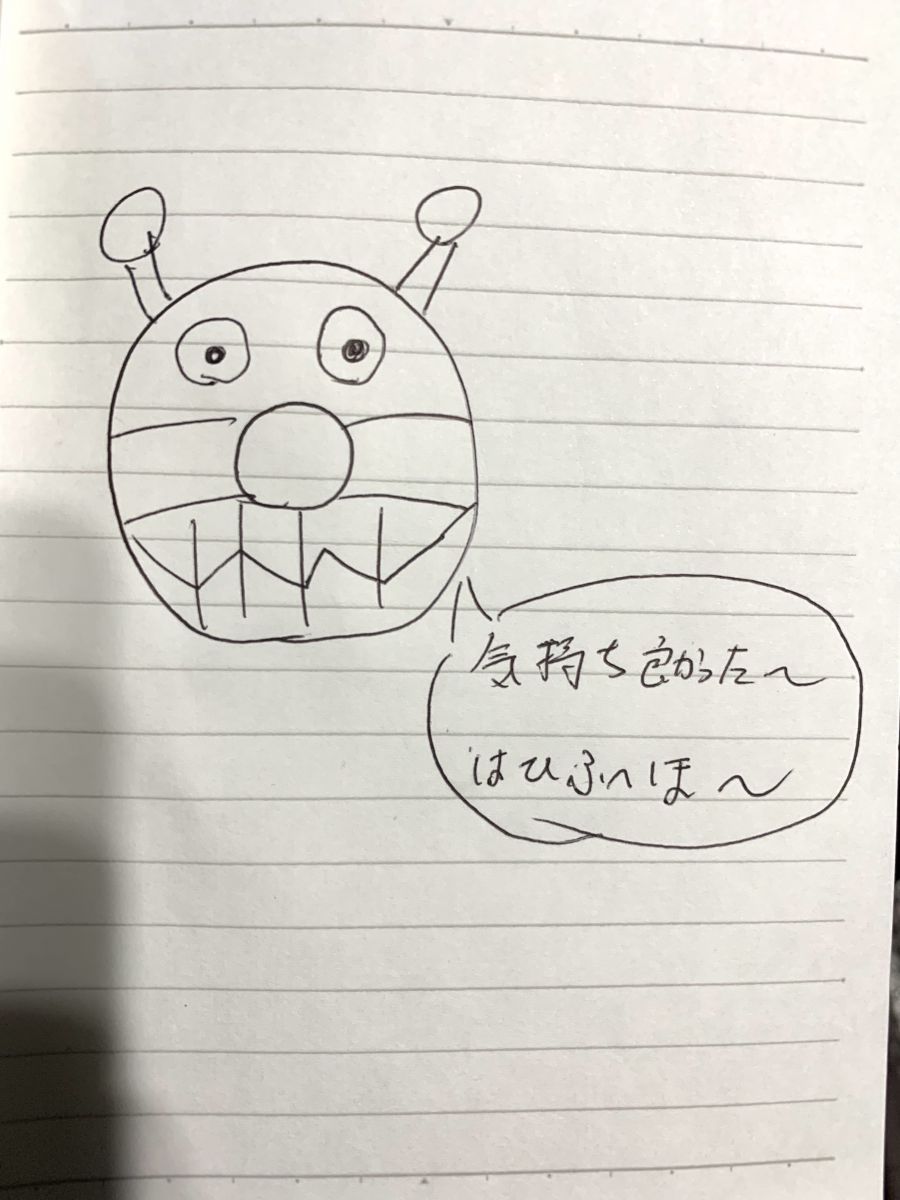 気持ち良かった〜
はひふへほ〜